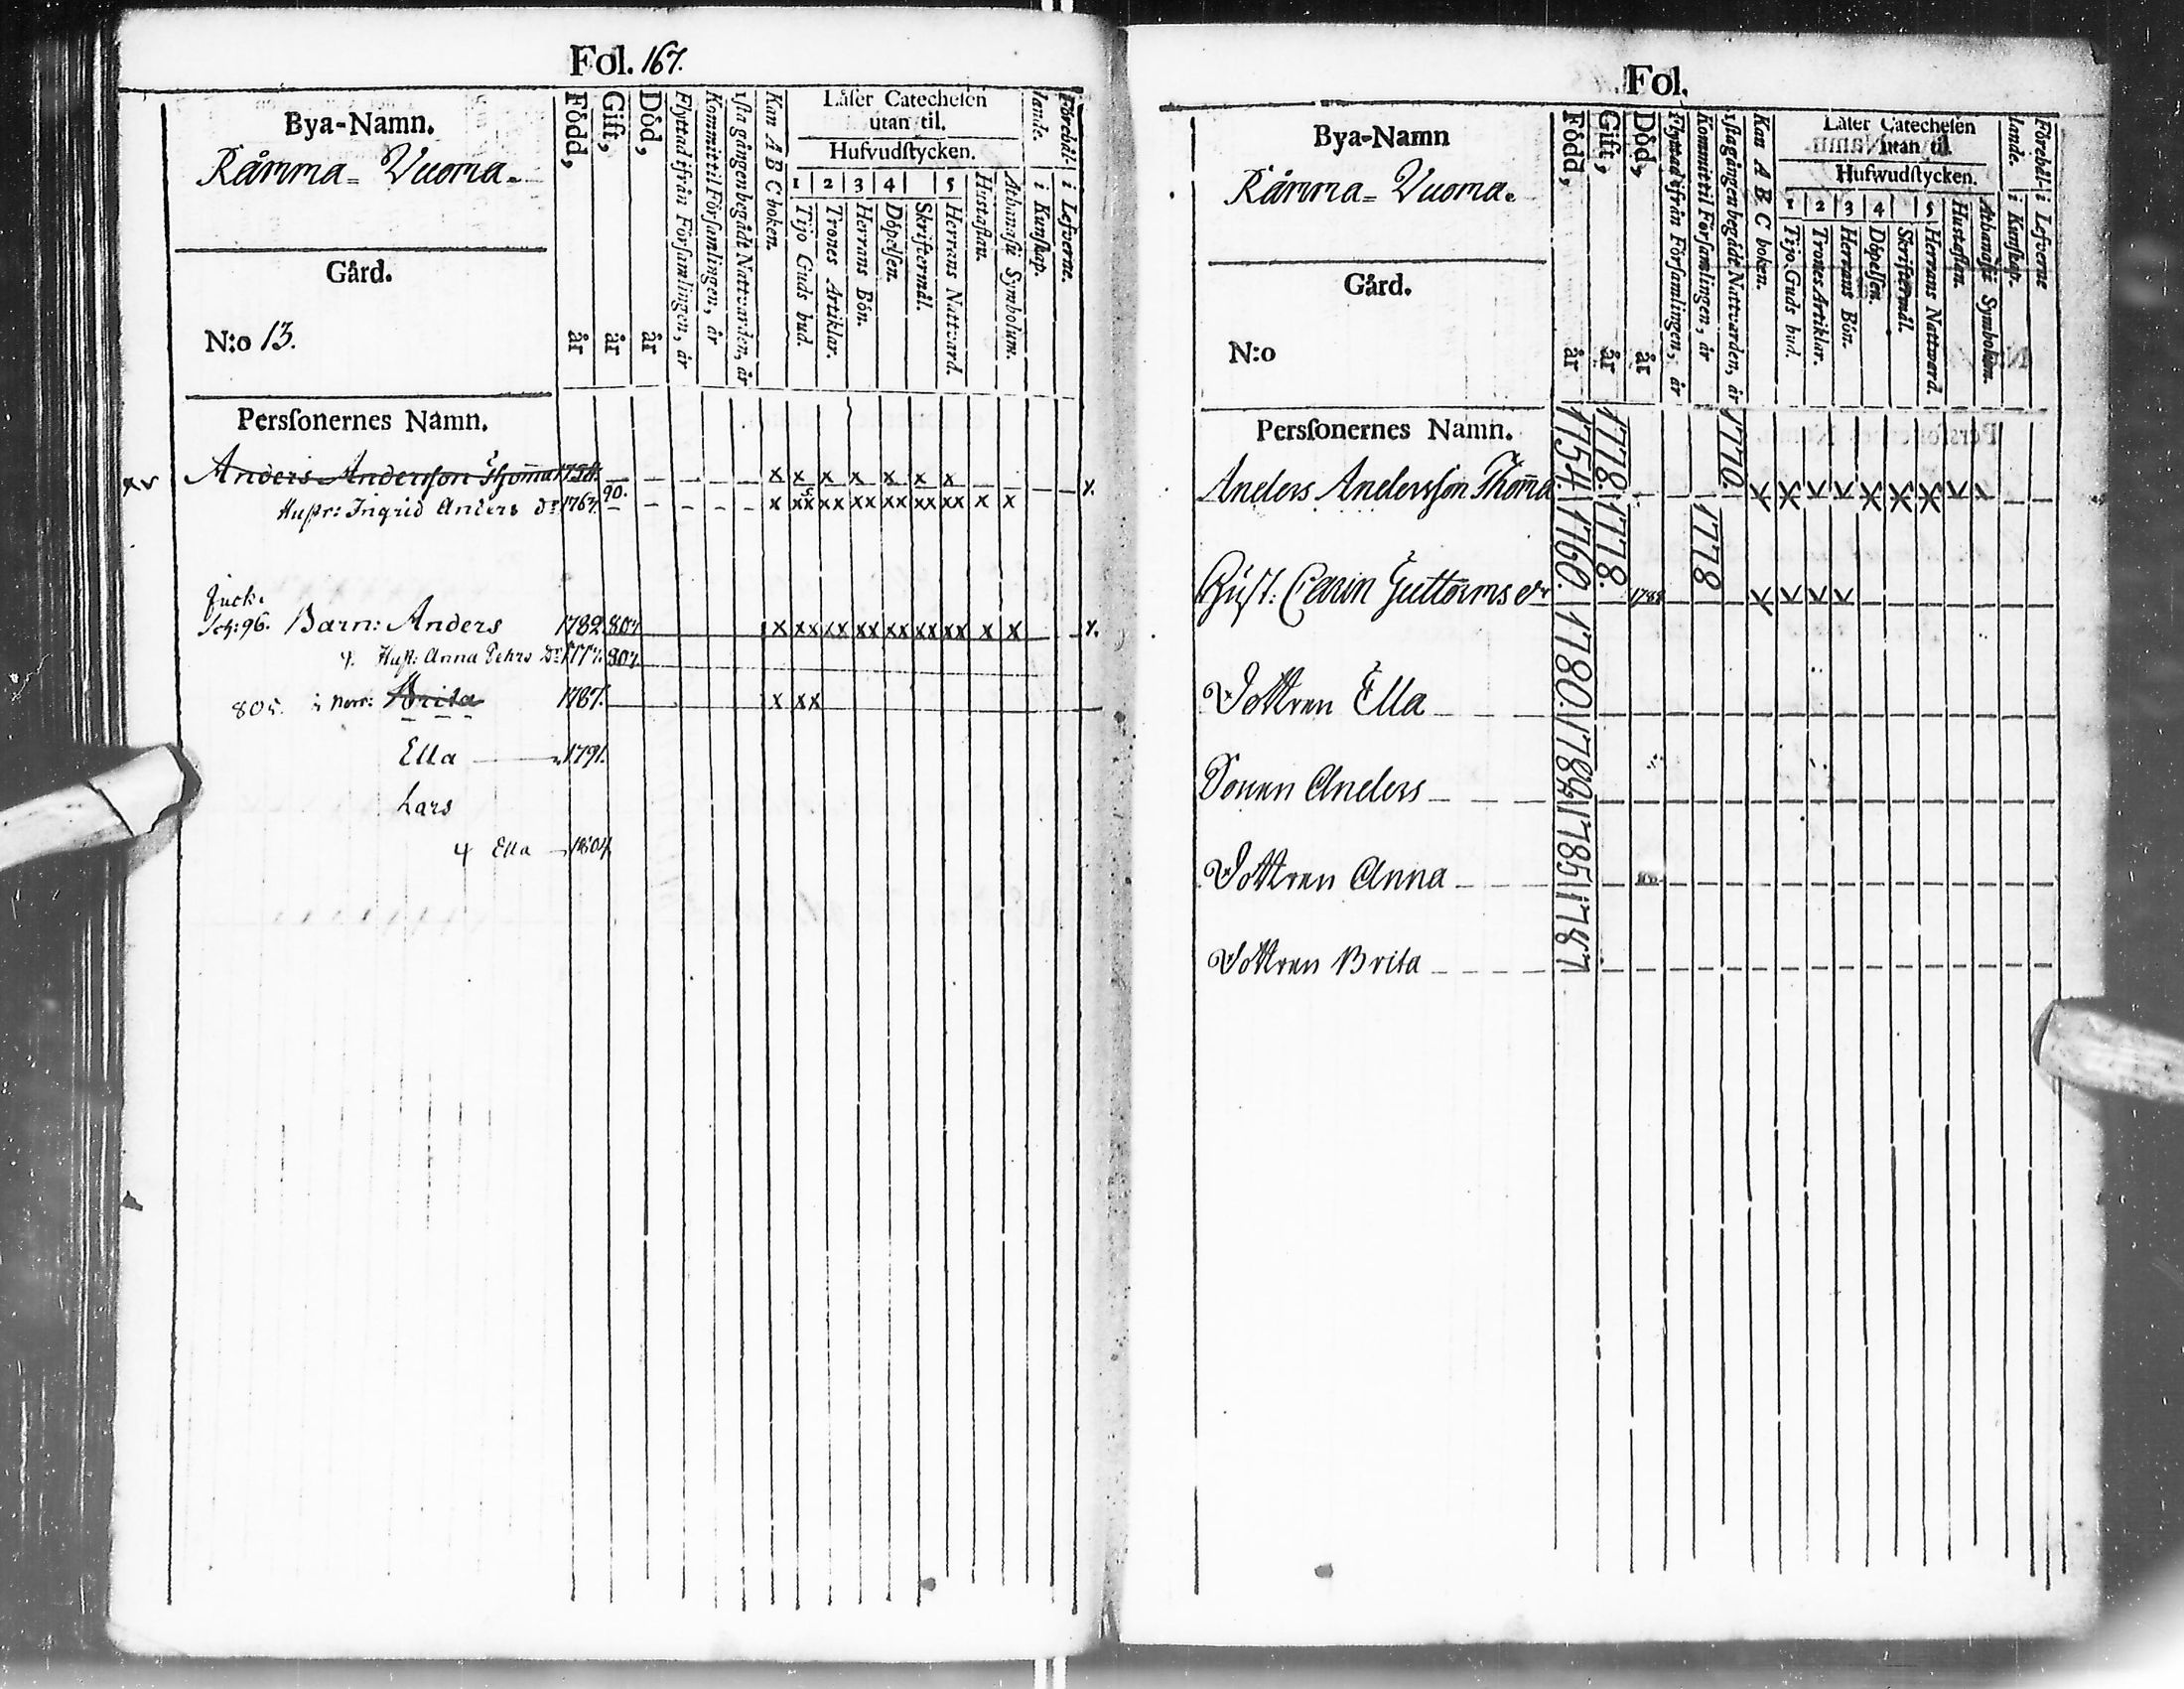 Fol. 167.
Bya-Namn.
Råmma= Vuoma.
Gård.
N:o 13.
Perſonernes Namn.
Född, år
Gift, år
Död, år
Flyttad ifrån Förſamlingen, år
Kommit til Förſamlingen, år
1ſta gången begådt Nattvarden, år
Kan A B C boken.
Läſer Catecheſen
utan til.
Hufvudſtycken.
1 2 3 4 5
Tijo Guds bud.
Trones Artiklar.
Herrans Bön.
Döpelſen.
Skriftermål.
Herrans Nattvard
Hustaflan.
Athanaſii Symbolum.
Förehållande.
i Kunſkap.
i Lefverne.
Anders Anderſſon Thom̄a 1754. — — — — — x x x x x x x x.
Huſtr: Ingrid Anders dr 1767. 90. — — — — x xx xx xx xx xx xx x x
Juck.
Sch: 96. Barn: Anders 1782. 804 x xx xx xx xx xx xx x x x.
4. Huſt: Anna Pehrs dr 1777. 804
805. i Norr: Brita 1787. x xx
Ella — 1791.
Lars
4 Ella — 1804
Fol.
Bya-Namn
Råmma= Vuoma.
Gård.
N:o
Perſonernes Namn.
Född, år
Gift, år
Död, år
Flyttad ifrån Förſamlingen, år
Kommit til Förſamlingen, år
1ſta gången begådt Nattvarden, år
Kan A B C boken.
Läſer Catecheſen
utan til.
Hufwudſtycken.
1 2 3 4 5
Tijo Guds bud.
Trones Artiklar.
Herrans Bön.
Döpelſen.
Skriftermål.
Herrans Nattward.
Hustaflan.
Athanaſii Symbolum.
Förehållande.
i Kunſkap.
i Lefverne
Anders Andersſon Thom̄a 1754. 1778. 1770. x x x x x x x x x
Huſt: Carin Guttorms dr 1760. 1778. 1788 1778 x x x x
Dottren Ella 1780.
Sonen Anders 1782
Dottren Anna 1785
Dottren Brita 1787